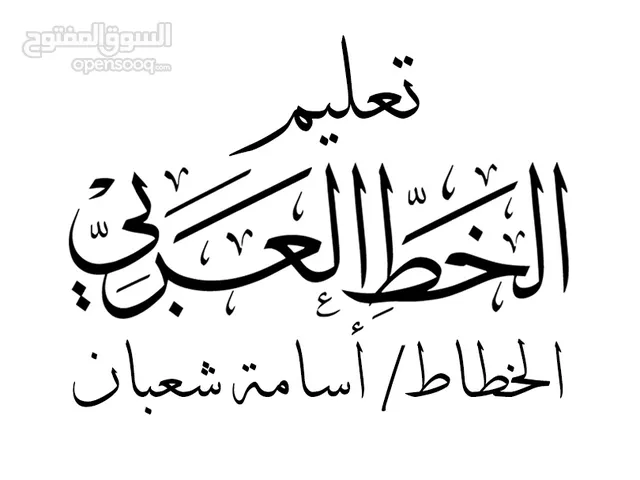 السوق المفتوح
opensooq.com
تعليم
الخطِّ العَربيّ
الخطاط / أسامة شعبان